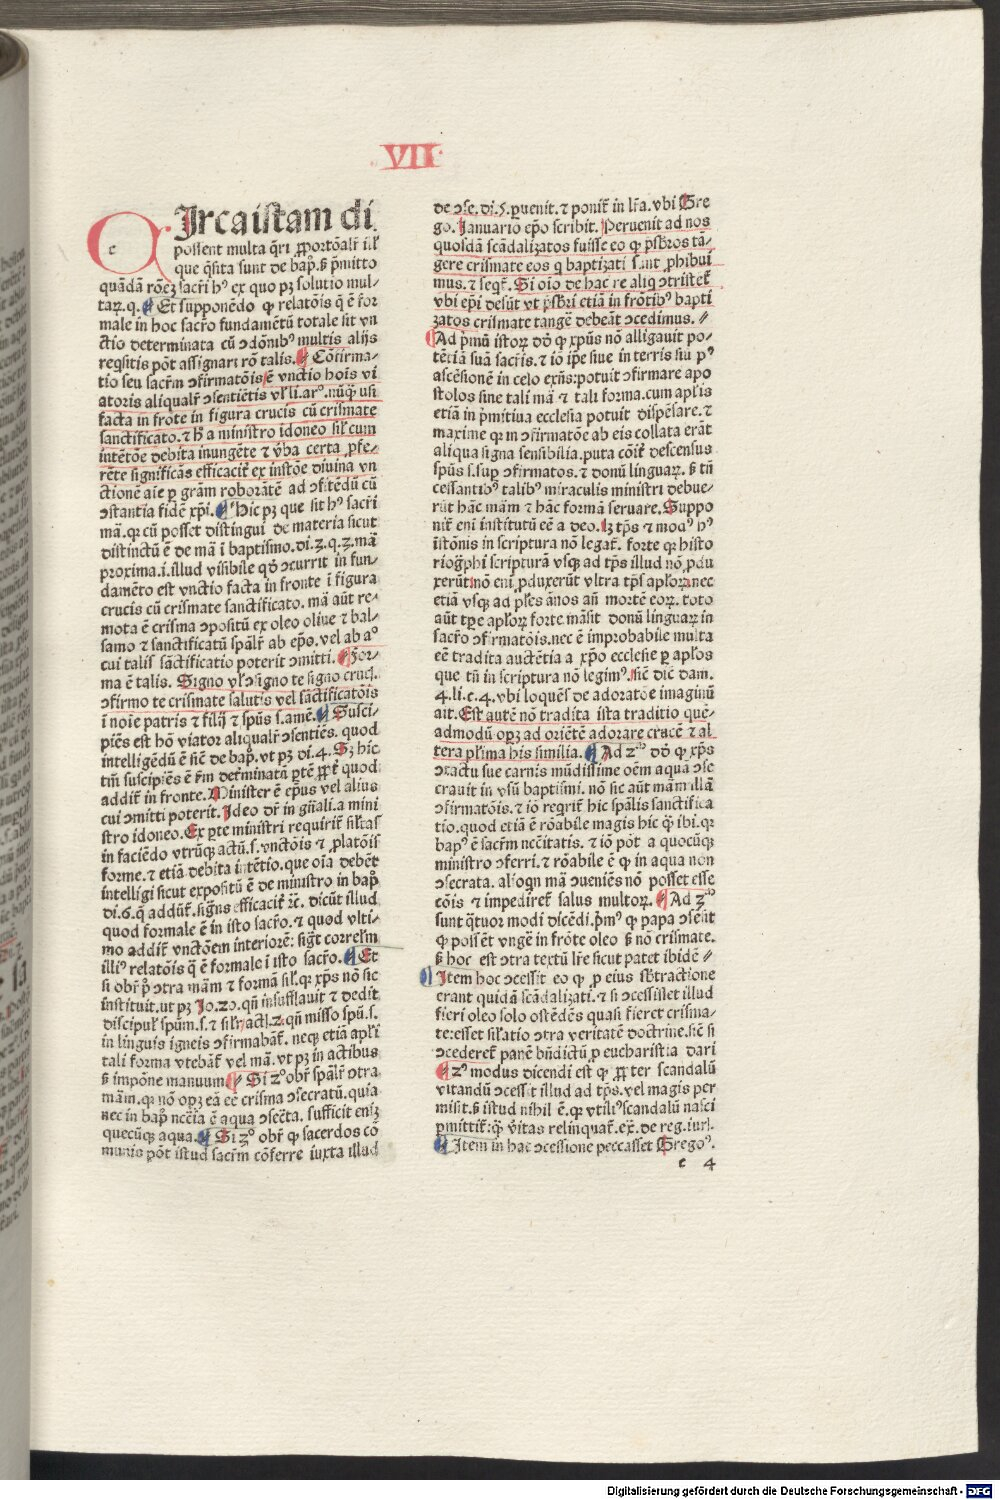 VII
CIrca istam di
possent multa q̄ri ꝓportōalr̄ i.l'
que q̄sita sunt de bap̄. ß p̄mitto
quādā rōeꝫ sacr̄i hꝰ ex quo pꝫ solutio mul-
taꝝ.q. Et supponēdo ꝙ relatōis q̄ ē for
male in hoc sacr̄o fundamētū totale sit vn
ctio determinata cū ↄdōnibꝰ multis alijs
reqsitis pōt assignari rō talis. Cōfirma-
tio seu sacr̄m ↄfirmatōis ē vnctio hois vi
atoris aliqualr̄ ↄsentiētis
facta in frōte in figura crucis cū crismate
sanctificato. a ministro idoneo sil' cum
intētōe debita inungēte ⁊ v̄ba certa ꝓfe-
rēte significās efficacit̄ ex instōe diuina vn
ctionē aīe ꝑ grām roborātē ad ↄfitēdū cū
ↄstantia fidē xp̄i. Hic pꝫ que sit hꝰ sacr̄i
mā. qꝛ cū posset distingui de materia sicut
distinctū ē de mā ī baptismo. di.3.q.3. mā
proxima.i. illud visibile qd̄ ↄcurrit in fun-
damēto est vnctio facta in fronte ī figura
crucis cū crismate sanctificato. mā aūt re-
mota ē crisma ↄpositū ex oleo oliue ⁊ bal-
samo ⁊ sanctificatū sp̄alr̄ ab ep̄o. vel ab aº
cui talis sāctificatio poterit ↄmitti. For-
ma ē talis. Signo vl' ↄsigno te signo cruc̄.
ↄfirmo te crismate salutis vel sāctificatōis
ī noīe patris ⁊ filij ⁊ sp̄us s. amē. Susci-
piēs est hō viator aliqualr̄ ↄsentiēs. quod
intelligēdū ē sic̄ de bap̄. vt pꝫ di.4. Sꝫ hic
tm̄ suscipiēs ē
addit̄ in fronte. Minister ē ep̄us vel alius
cui ↄmitti poterit. Ideo dr̄ in gn̄ali. a mini
stro idoneo. Ex ꝑte ministri requirit̄ sil'tas
in faciēdo vtrūqꝫ actū.s. vnctōis ⁊ ꝓlatōis
forme. ⁊ etiā debita intētio. que oīa debēt
intelligi sicut expositū ē de ministro in bap̄
di.6. q̄ addūt̄. sig̅ns efficacit̄ ⁊c̄. dicūt illud
quod formale ē in isto sacr̄o. ⁊ quod vlti-
mo addit̄ vnctōem interiorē: sig̅t correl'm
illiꝰ relatōis q̄ ē formale ī isto sacr̄o. Et
si obr̄ pº ↄtra mām ⁊ formā sil'. qꝛ xp̄s nō sic
instituit. vt pꝫ Jo.20. qn̄ insufflauit ⁊ dedit
discipul' sp̄um.s. ⁊ sil'r act.2. qn̄ misso sp̄u.s.
in linguis igneis ↄfirmabāt̄. neqꝫ etiā apl'i
tali forma vtebāt̄ vel mā. vt pꝫ in actibus
ß impōne manuum. Si 2º obr̄ sp̄alr̄ ↄtra
mām. qꝛ nō opꝫ eā eē crisma ↄsecratū. quia
nec in bap̄ nc̄eia ē aqua ↄsc̄ta. sufficit enī
quecūqꝫ aqua. Si 3º obr̄ ꝙ sacerdos cō
munis pōt istud sacr̄m cōferre iuxta illud
de ↄse. di.5. ꝑuenit. ⁊ ponit̄ in lr̄a. vbi Gre
go. Januario ep̄o scribit. Peruenit ad nos
quosdā scādalizatos fuisse eo ꝙ p̄sbr̄os tā-
gere crismate eos q baptizati sunt ꝓhibui
mus. ⁊ seqt̄. Si oīo de hac re aliq ↄtristēt̄
vbi ep̄i desūt vt p̄sbr̄i etiā in frōtibꝰ bapti
zatos crismate tangē debeāt ↄcedimus.
Ad p̄mū istoꝝ dd̄ ꝙ xp̄us nō alligauit po-
tētiā suā sacr̄is. ⁊ iō ip̄e siue in terris siu pꝰ
ascēsionē in celo exn̄s: potuit ↄfirmare apo
stolos sine tali mā ⁊ tali forma. cum aplīs
etiā in p̄mitiua ecclesia potuit dispēsare. ⁊
maxime qꝛ in ↄfirmatōe ab eis collata erāt
aliqua signa sensibilia. puta cōit̄ descensus
sp̄us s. sup ↄfirmatos. ⁊ donū linguaꝝ. ß tn̄
cessantibꝰ talibꝰ miraculis ministri debue-
rūt hāc mām ⁊ hāc formā seruare. Suppo
nit̄ eni institutū eē a deo. lꝫ tp̄s ⁊ modꝰ hꝰ
īstōnis in scriptura nō legat̄. forte qꝛ histo
riog̅phi scripturā vsqꝫ ad tp̄s illud nō ꝓdu
xerūt nō enī ꝓduxerūt vltra tp̄s apl'oꝝ. nec
etiā vsqꝫ ad pl'es ānos an̄ mortē eoꝝ. toto
aūt tp̄e apl'oꝝ forte māsit donū linguaꝝ in
sacr̄o ↄfirmatōis. nec ē improbabile multa
eē tradita auctētia a xp̄o ecclesie ꝑ apl'os
que tn̄ in scriptura nō legimꝰ. sic̄ dic̄ dam.
4.li.c.4. vbi loquēs de adoratōe imaginū
ait. Est autē nō tradita ista traditio quē-
admodū opꝫ ad oriētē adorare crucē ⁊ al
tera pl'ima his similia. Ad 2m dd̄ ꝙ xp̄s
ↄtactu sue carnis mūdissime oēm aquā ↄse
crauit in vsū baptismi. nō sic aūt mām illā
ↄfirmatōis. ⁊ iō reqrit̄ hic sp̄alis sanctifica
tio. quod etiā ē rōabile magis hic q̄ ibi. qꝛ
bapꝰ ē sacr̄m nc̄citatis. ⁊ iō pōt a quocūqꝫ
ministro ↄferri. ⁊ rōabile ē ꝙ in aqua non
ↄsecrata. alioqn mā ↄueniēs nō posset esse
cōis ⁊ impediret̄ salus multoꝝ. Ad 3m
sunt q̄tuor modi dicēdi. p̄mꝰ ꝙ papa ↄsēsit
ꝙ possēt vngē in frōte oleo ß nō crismate.
ß hoc est ↄtra textū lr̄e sicut patet ibidē
Item hoc ↄcessit eo ꝙ ꝓ eius sb̄tractione
erant quidā scādalizati. ⁊ si ↄcessisset illud
fieri oleo solo ostēdēs quasi fieret crisma-
te: esset sil'atio ↄtra veritatē doctrine. sic̄ si
ↄcederet̄ panē bn̄dictū ꝓ eucharistia dari
2º modus dicendi est ꝙ ꝓpter scandalū
vitandū ↄcessit illud ad tp̄s. vel magis per
misit. ß istud nihil ē. qꝛ vtiliꝰ scandalū nasci
ꝑmittit̄: q̄ v̄itas relinquat̄. ex̄. de reg. iur̄.
Item in hac ↄcessione peccasset Gregoꝰ.
c 4
Digitalisierung gefördert durch die Deutsche Forschungsgemeinschaft - DFG